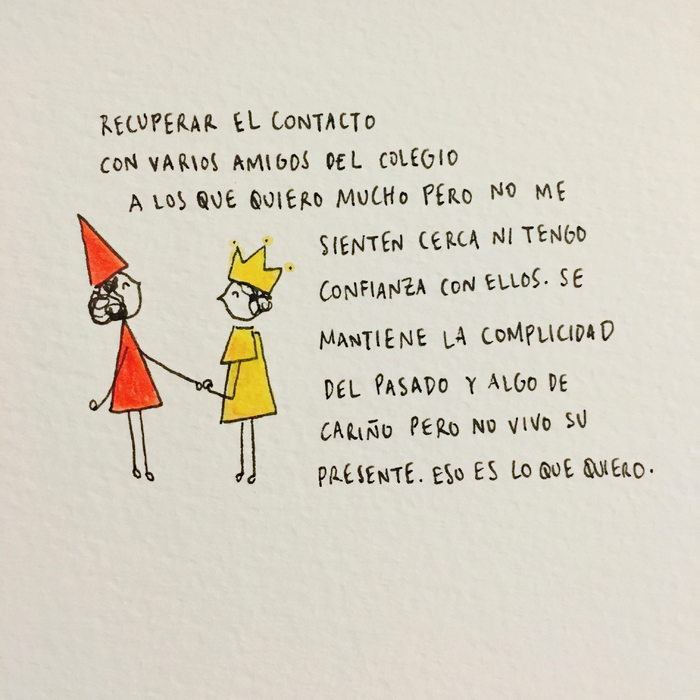 RECUPERAR EL CONTACTO
CON VARIOS AMIGOS DEL COLEGIO
A LOS QUE QUIERO MUCHO PERO NO ME
SIENTEN CERCA NI TENGO
CONFIANZA CON ELLOS. SE
MANTIENE LA COMPLICIDAD
DEL PASADO Y ALGO DE
CARIÑO PERO NO VIVO SU
PRESENTE. ESO ES LO QUE QUIERO.